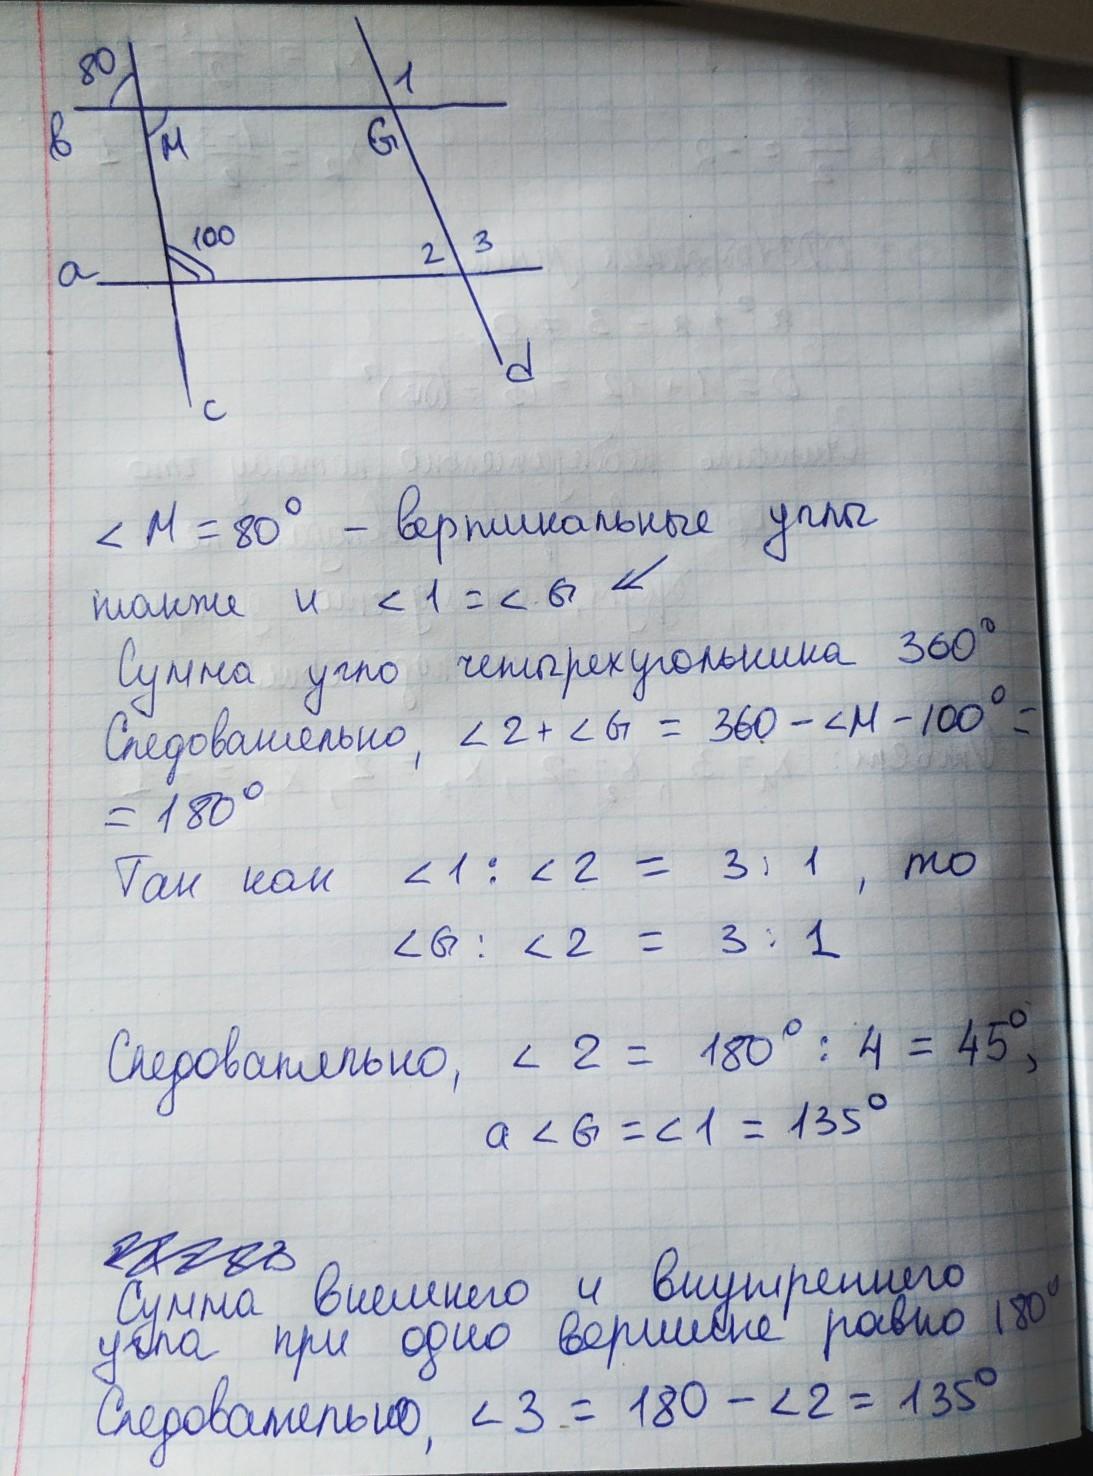 80
1
b
M
G
100
2
3
a
d
c
< M = 80° - вертикальные углы
также и < 1 = < G
Сумма угло четырехугольника 360°
Следовательно, < 2 + < G = 360 - < M - 100° =
= 180°
Так как < 1 : < 2 = 3 : 1 , то
< G : < 2 = 3 : 1
Следовательно, < 2 = 180° : 4 = 45°,
а < G = < 1 = 135°
Сумма внешнего и внутреннего
угла при одно вершине равно 180°
Следовательно, < 3 = 180 - < 2 = 135°